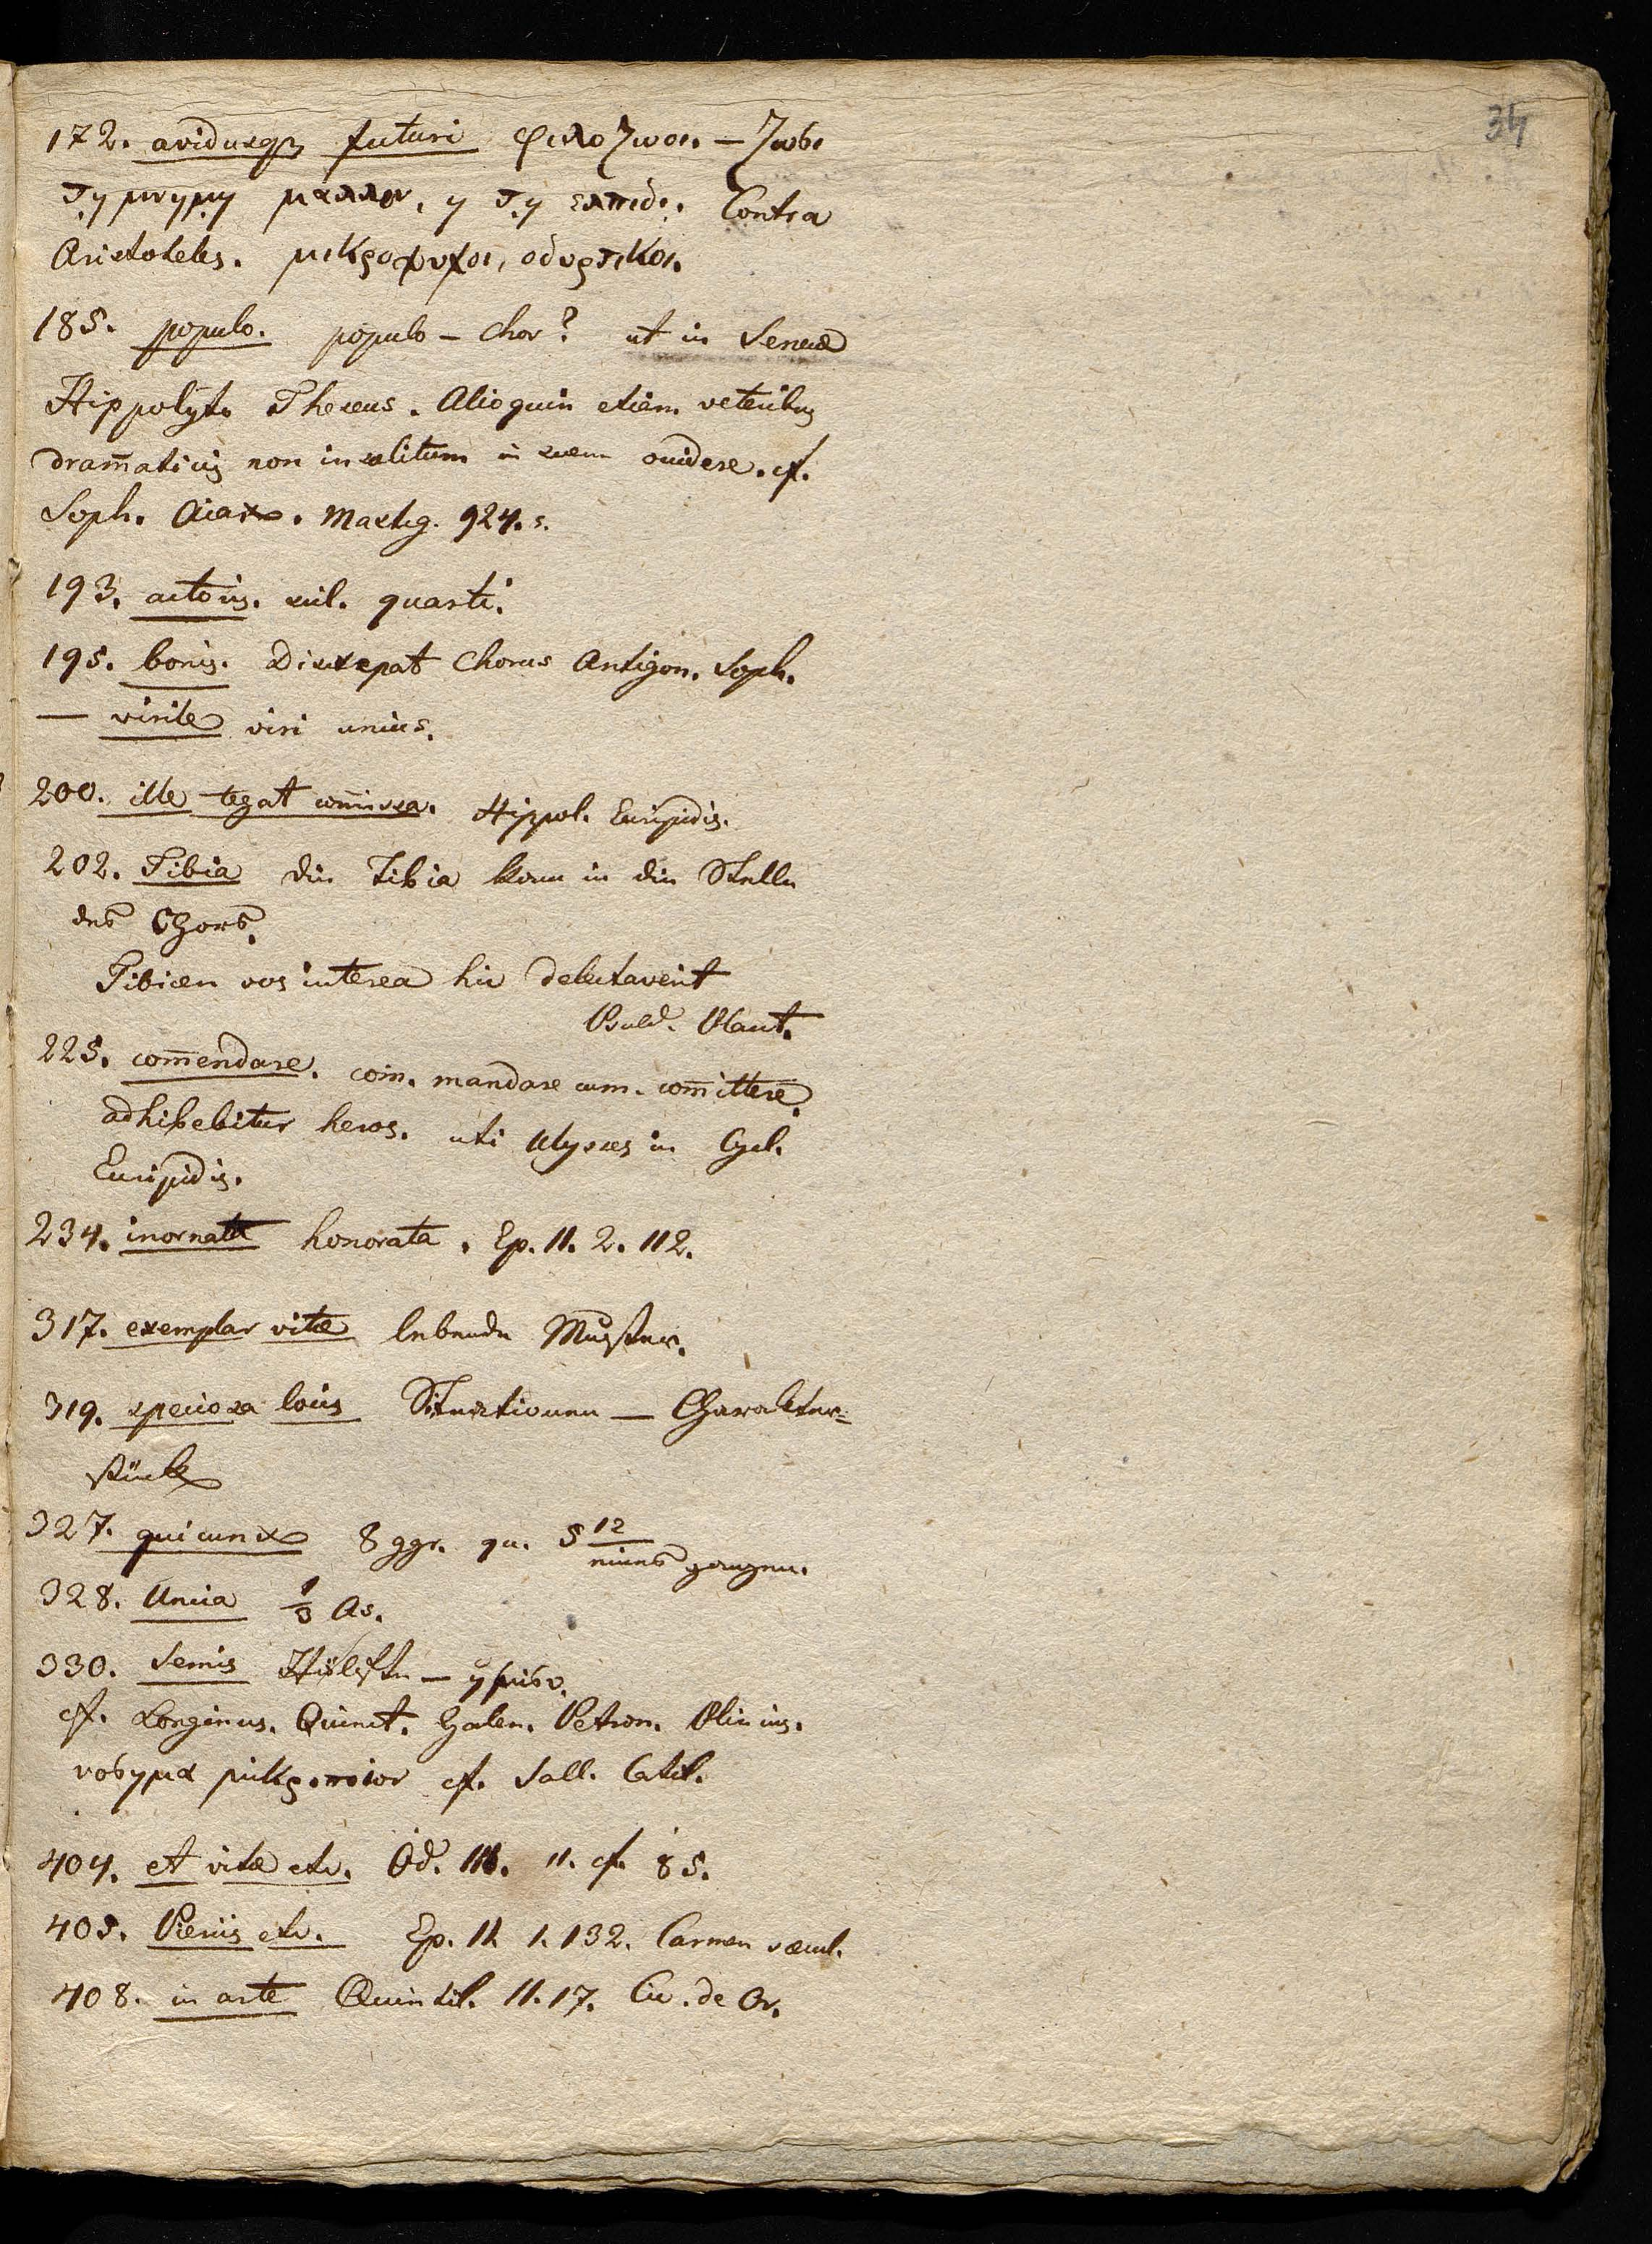 34
172. avidusq₃ futuri φιλοζωοι. – ζωσι
τῃ μνημῃ μαλλον, η τῃ ελπιδι. Contra
Aristoteles. μικροψυχοι, οδυρτικοι.
185. populo. populo – Chor? ut in Senecae
Hippolyto Theseus. Alioquin etiam veteribus
dram̄aticis non insolitum in scena occidere. cf.
Soph. Aiax. Mastig. 924. s.
193. actoris. scil. quarti.
195. bonis. Discrepat Chorus Antigon. Soph.
— virile viri unius.
200. ille tegat com̄issa. Hippol. Euripidis.
202. Tibia die Tibia kam in die Stelle
des Chors.
Tibicen vos interea hic delectaverit
Pseud. Plaut.
225. com̄endare. com. mandare cum. com̄ittere.
adhibebitur heros. uti Ulysses in Cycl.
Euripidis.
234. inornata honorata. Ep. II. 2. 112.
317. exemplar vitae lebende Muster.
319. speciosa locis Situationen — Charakter=
stück
327. quicunx 8 ggr. qu. 5 12
eines ganzen.
328. Uncia ⅓ As.
330. Semis Hälfte – ημισυ.
cf. Longinus. Quinct. Galen. Petron. Plinius.
νοσημα μικροποιον cf. Sall. Catil.
404. et vitae etc. Od. III. 11. cf. 85.
405. Pieriis etc. Ep. II. 1. 132. Carmen saecul.
408. in arte Quinctil. 11. 17. Cic. de Or.